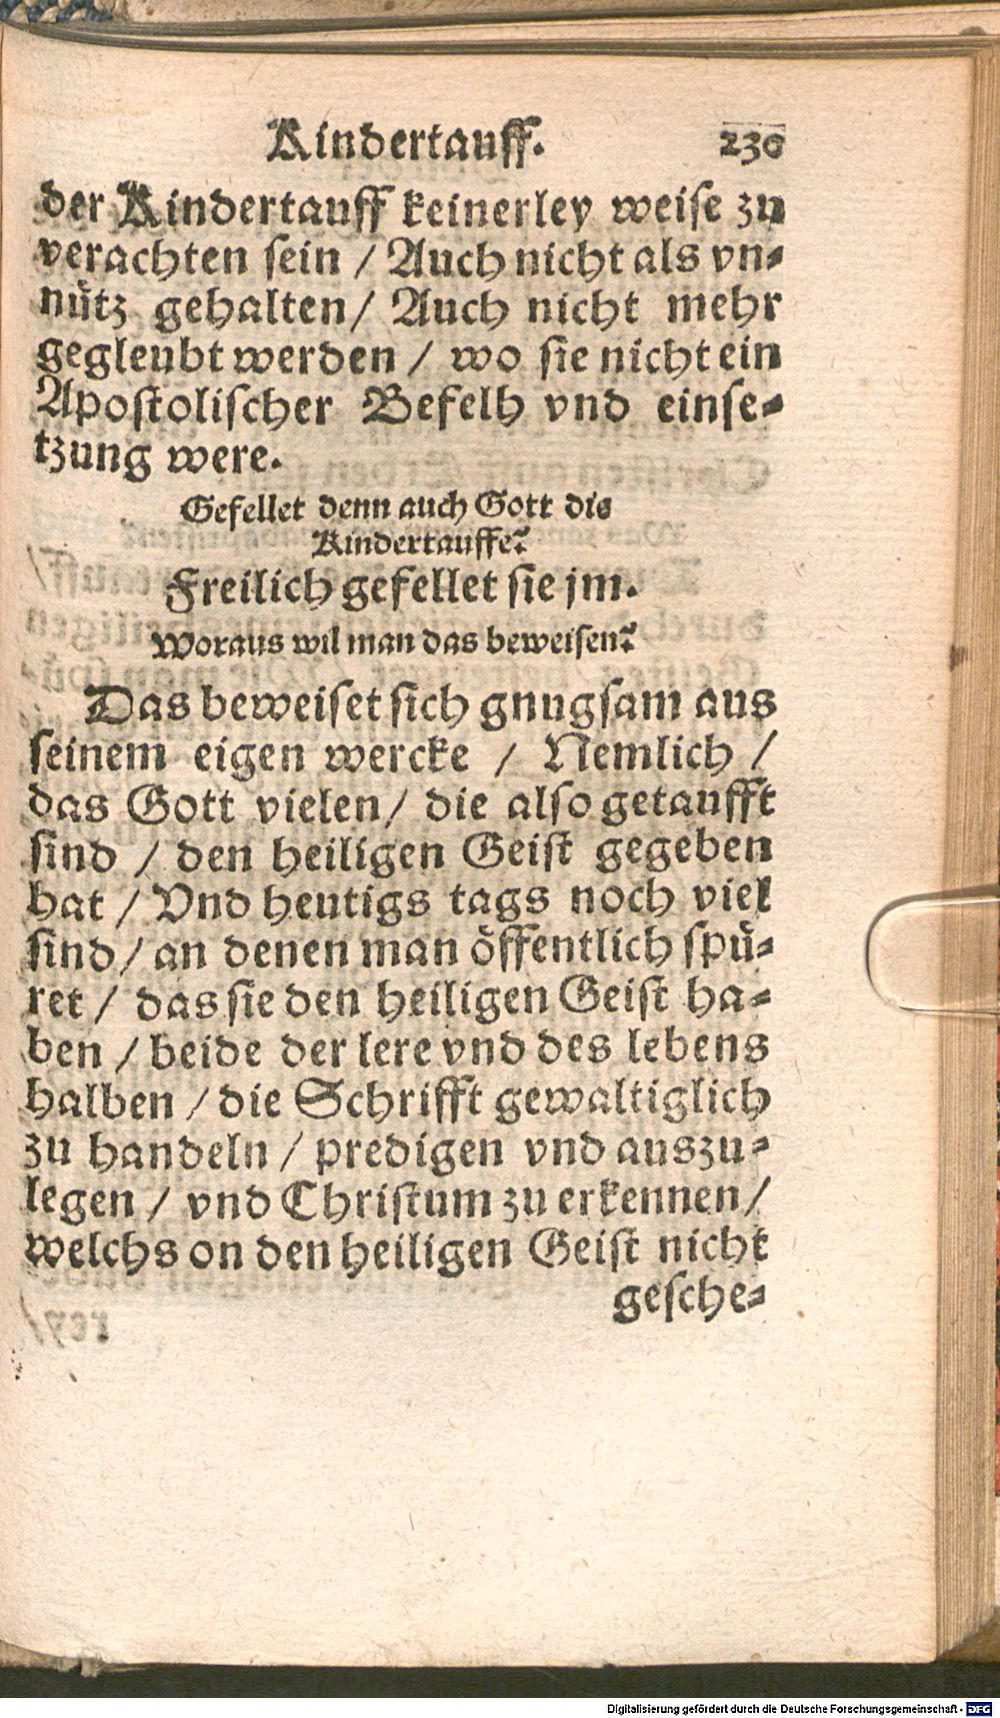 Kindertauff. 230
der Kindertauff keinerley weise zu
verachten sein / Auch nicht als vn⸗
nütz gehalten / Auch nicht mehr
gegleubt werden / wo sie nicht ein
Apostolischer Befelh vnd einse⸗
tzung were.
Gefellet denn auch Gott die
Kindertauffe?
Freilich gefellet sie jm.
Woraus wil man das beweisen?
Das beweiset sich gnugsam aus
seinem eigen wercke / Nemlich /
das Gott vielen / die also getaufft
sind / den heiligen Geist gegeben
hat / Vnd heutigs tags noch viel
sind / an denen man öffentlich spü⸗
ret / das sie den heiligen Geist ha⸗
ben / beide der lere vnd des lebens
halben / die Schrifft gewaltiglich
zu handeln / predigen vnd auszu⸗
legen / vnd Christum zu erkennen /
welchs on den heiligen Geist nicht
gesche⸗
Digitalisierung gefördert durch die Deutsche Forschungsgemeinschaft - DFG